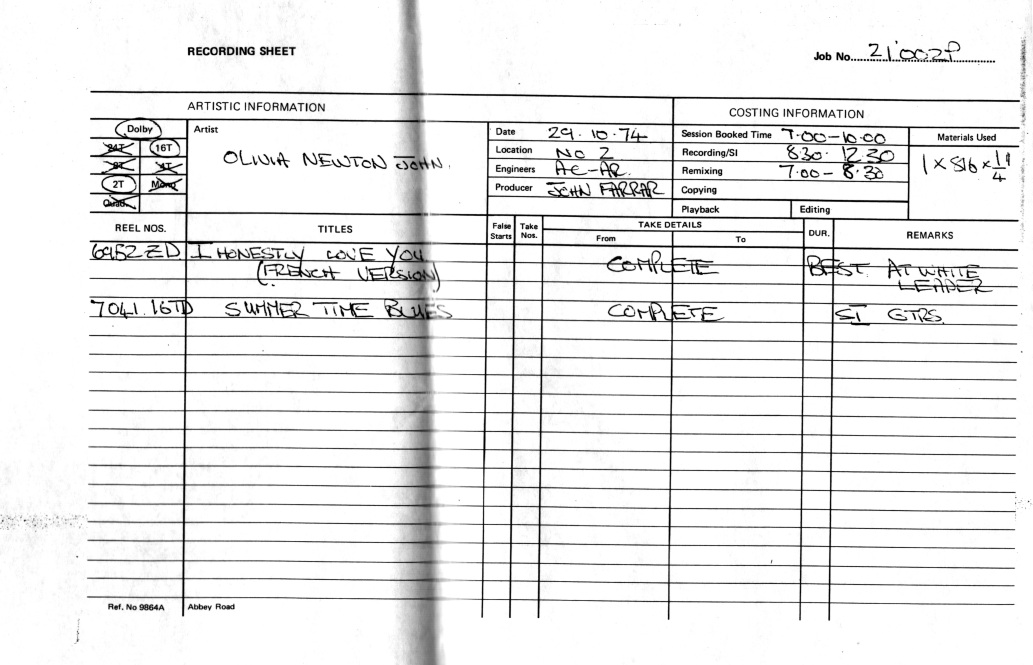 RECORDING SHEET
Job No. 21002P
ARTISTIC INFORMATION
COSTING INFORMATION
Dolby
24T 16T
8T 4T
2T Mono
Quad.
Artist
OLIVIA NEWTON JOHN.
Date 29.10.74
Location NO 2
Engineers AC-AR.
Producer JOHN FARRAR
Session Booked Time 7.00-10.00
Recording/SI 8.30. 12.30
Remixing 7.00-8.30
Copying
Playback Editing
Materials Used
1 x 816 x 1/4"
REEL NOS. TITLES False Starts Take Nos. TAKE DETAILS From To DUR. REMARKS
6952ZD I HONESTLY LOVE YOU COMPLETE BEST. AT WHITE
(FRENCH VERSION) LEADER
7041.16TD SUMMER TIME BLUES COMPLETE SI GTRS.
Ref. No 9864A Abbey Road